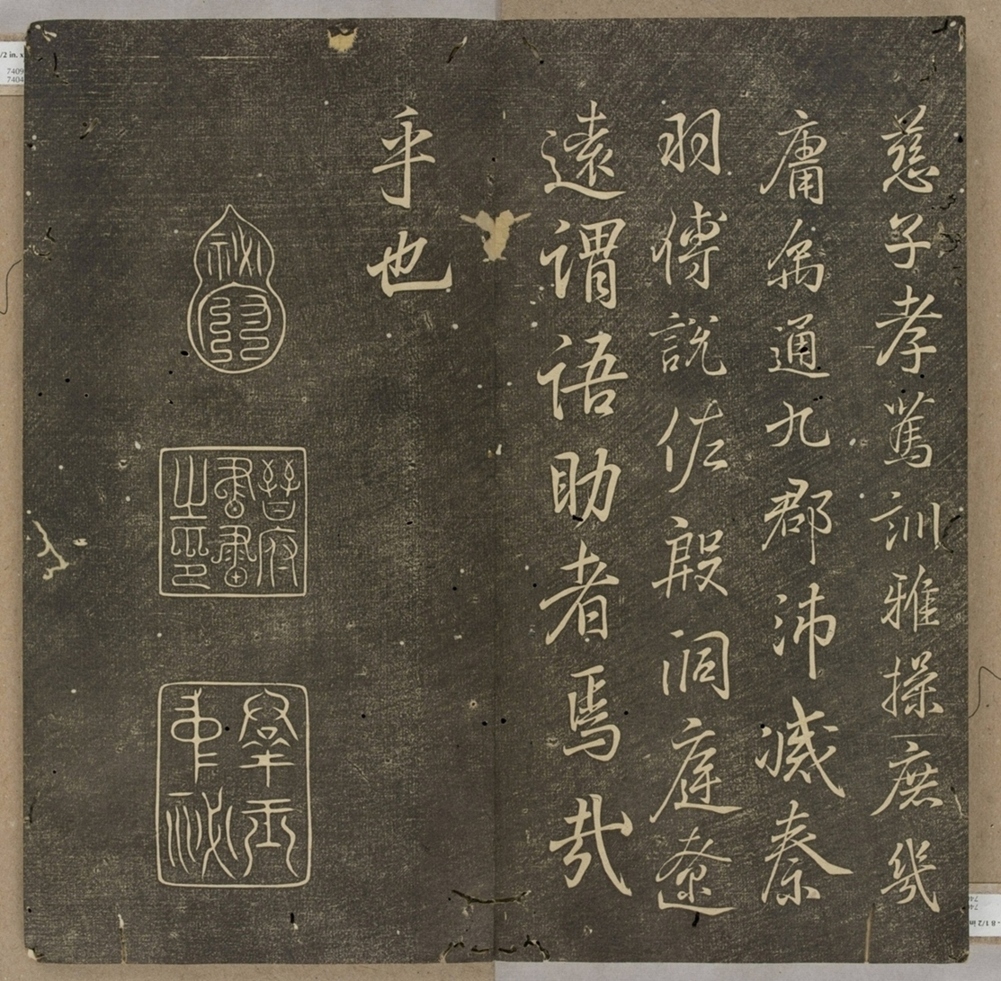 慈子孝篤訓雅操庶幾
庸勞通九郡沛滅秦
羽傅說佐殷洞庭遼
遠謂語助者焉哉
乎也
晉府
書畫
之印